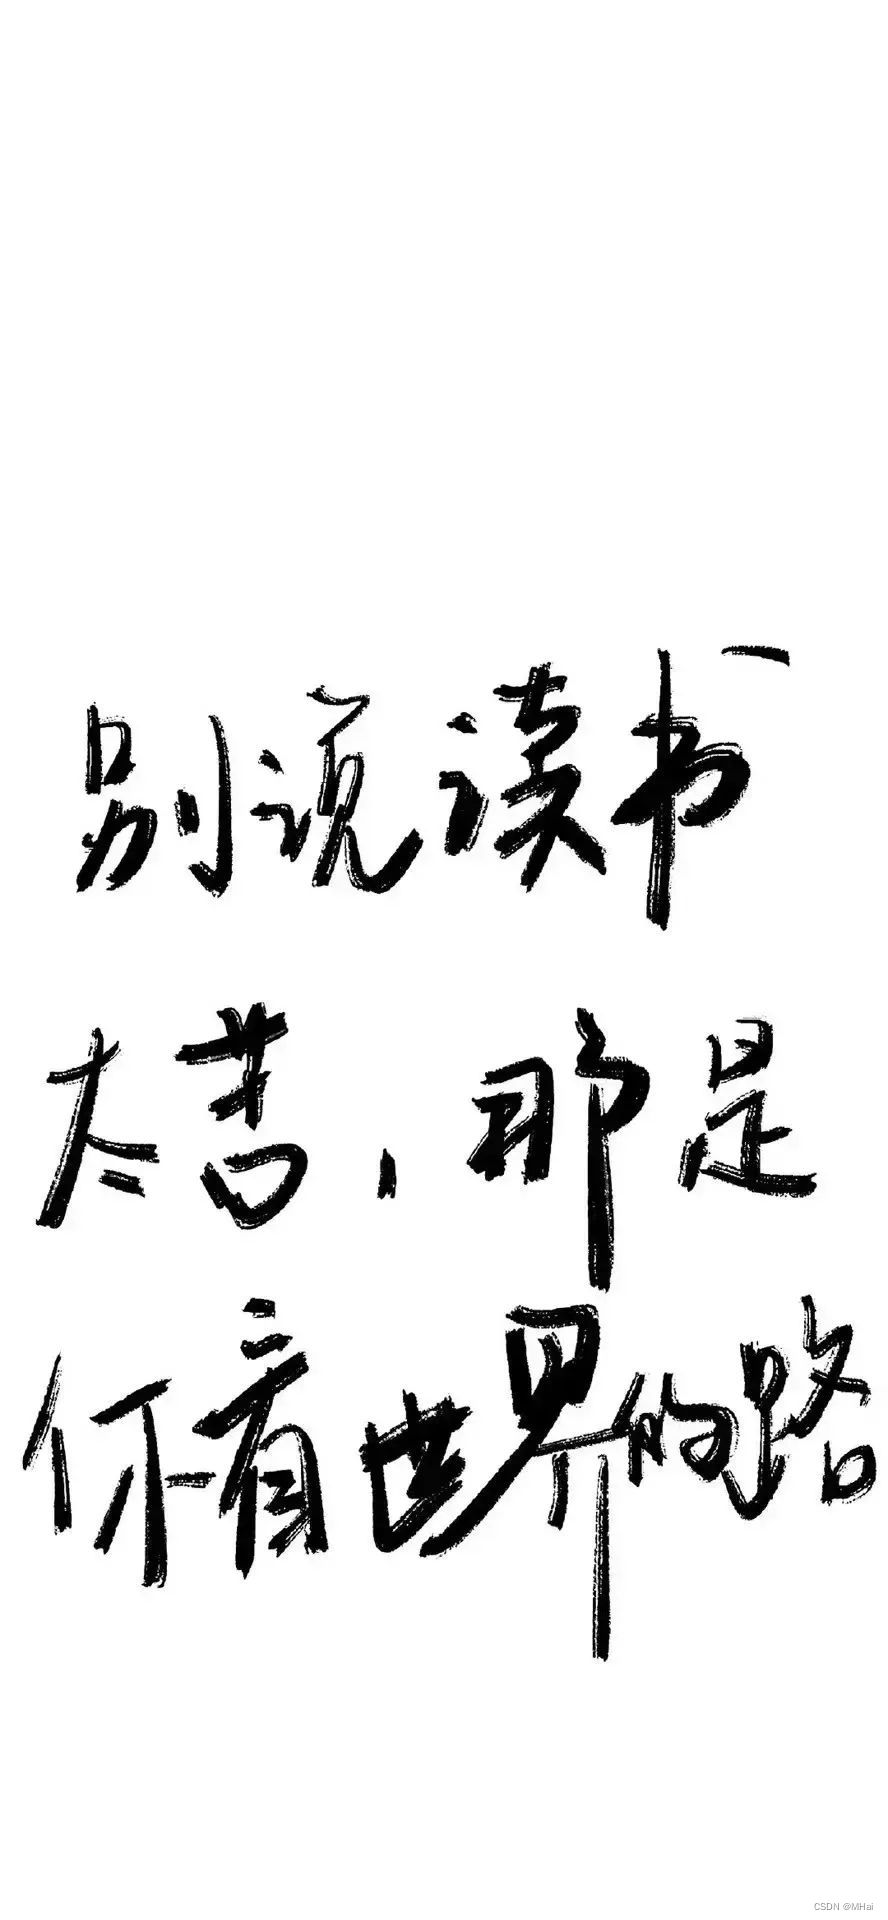 别说读书
太苦,那是
你看世界的路
CSDN @MHai